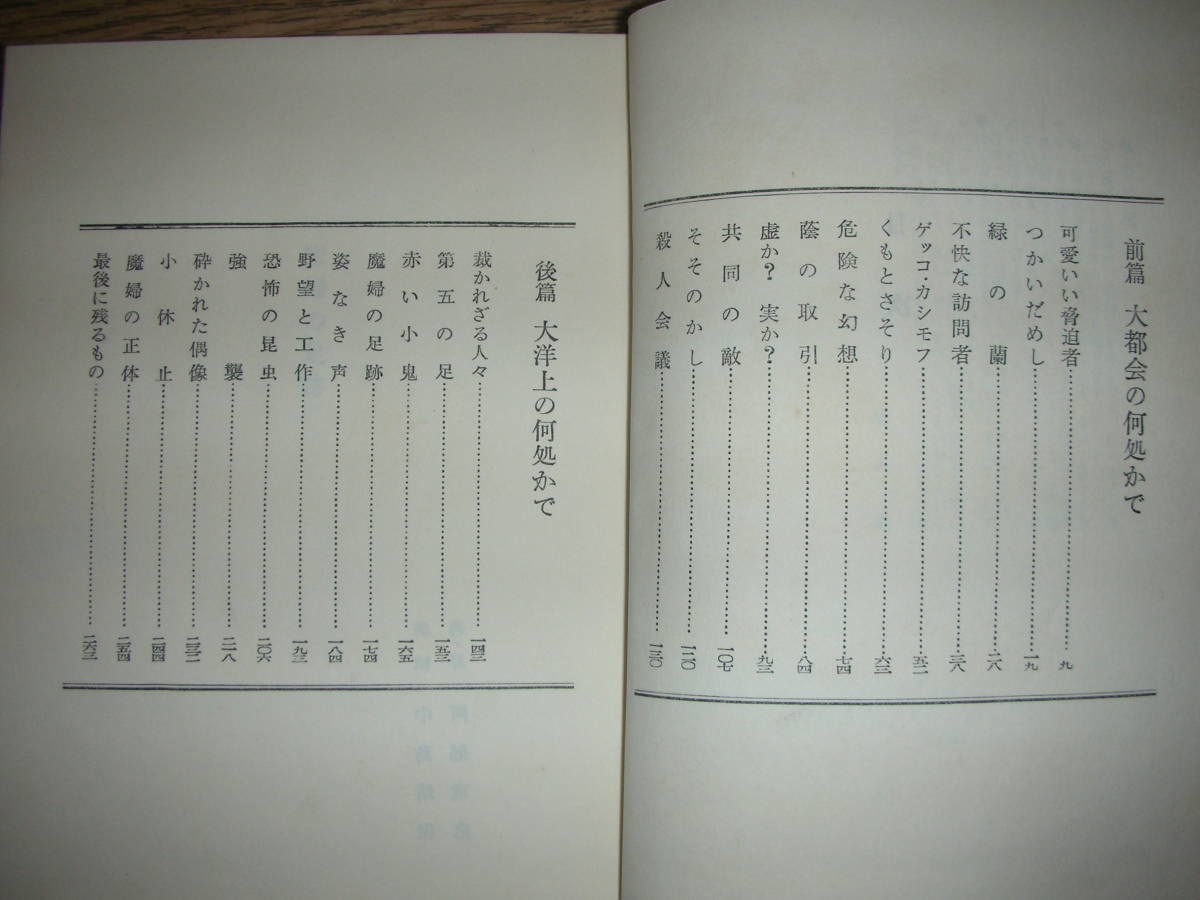 前篇 大都会の何処かで
可愛いい脅迫者……九
つかいだめし……一九
緑の蘭……二八
不快な訪問者……三八
ゲッコ・カシモフ……五二
くもとさそり……六三
危険な幻想……七四
蔭の取引……八四
虚か?実か?……九三
共同の敵……一〇七
そそのかし……一二〇
殺人会議……一三〇
後篇 大洋上の何処かで
裁かれざる人々……一四三
第五の足……一五三
赤い小鬼……一六五
魔婦の足跡……一七四
姿なき声……一八四
野望と工作……一九三
恐怖の昆虫……二〇六
強襲……二一八
砕かれた偶像……二三二
小休止……二四四
魔婦の正体……二五四
最後に残るもの……二六三